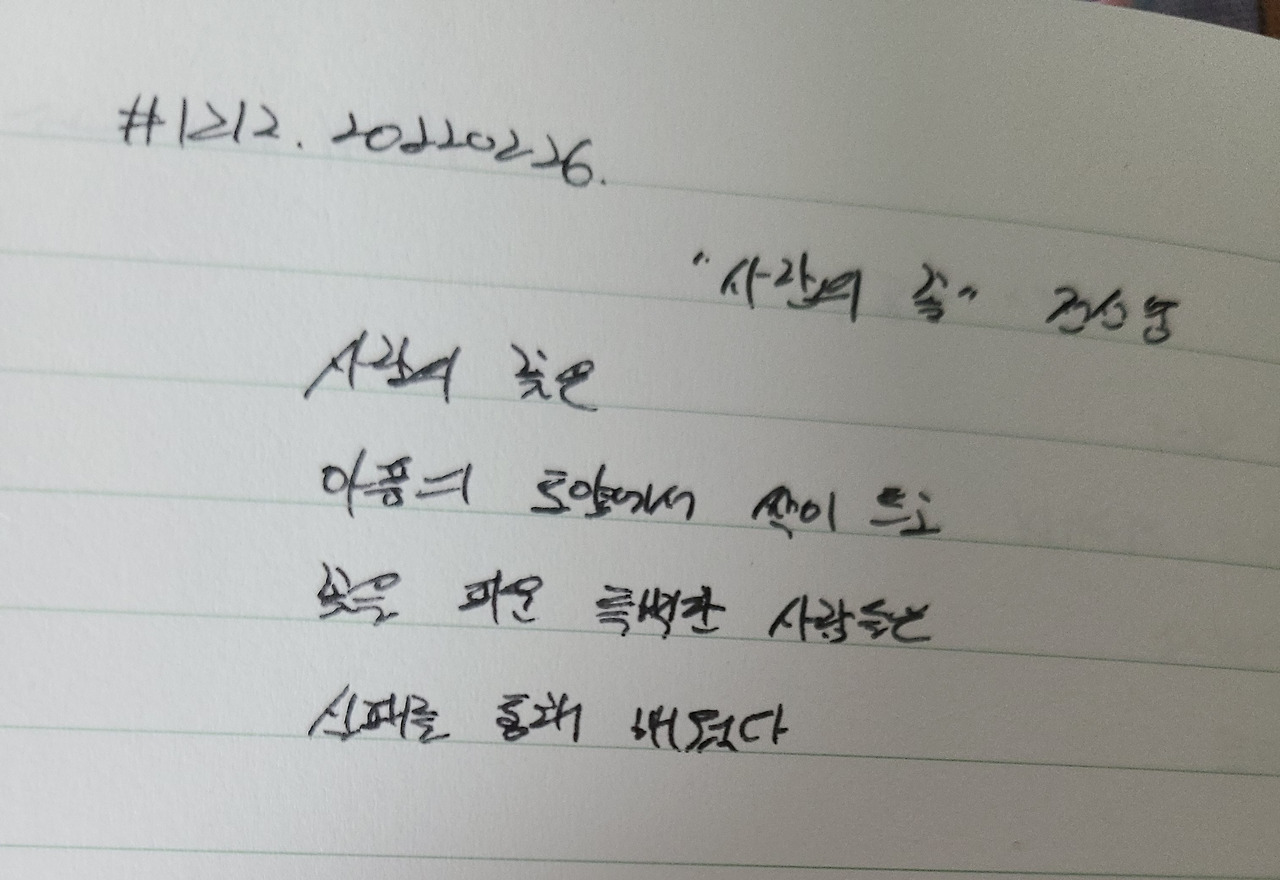 #1212. 20220226.
"사람의 꽃"
사람의 꽃은
아픔의 토양에서 싹이 트고
꽃을 피운 특별한 사람들은
실패를 통해 배웠다